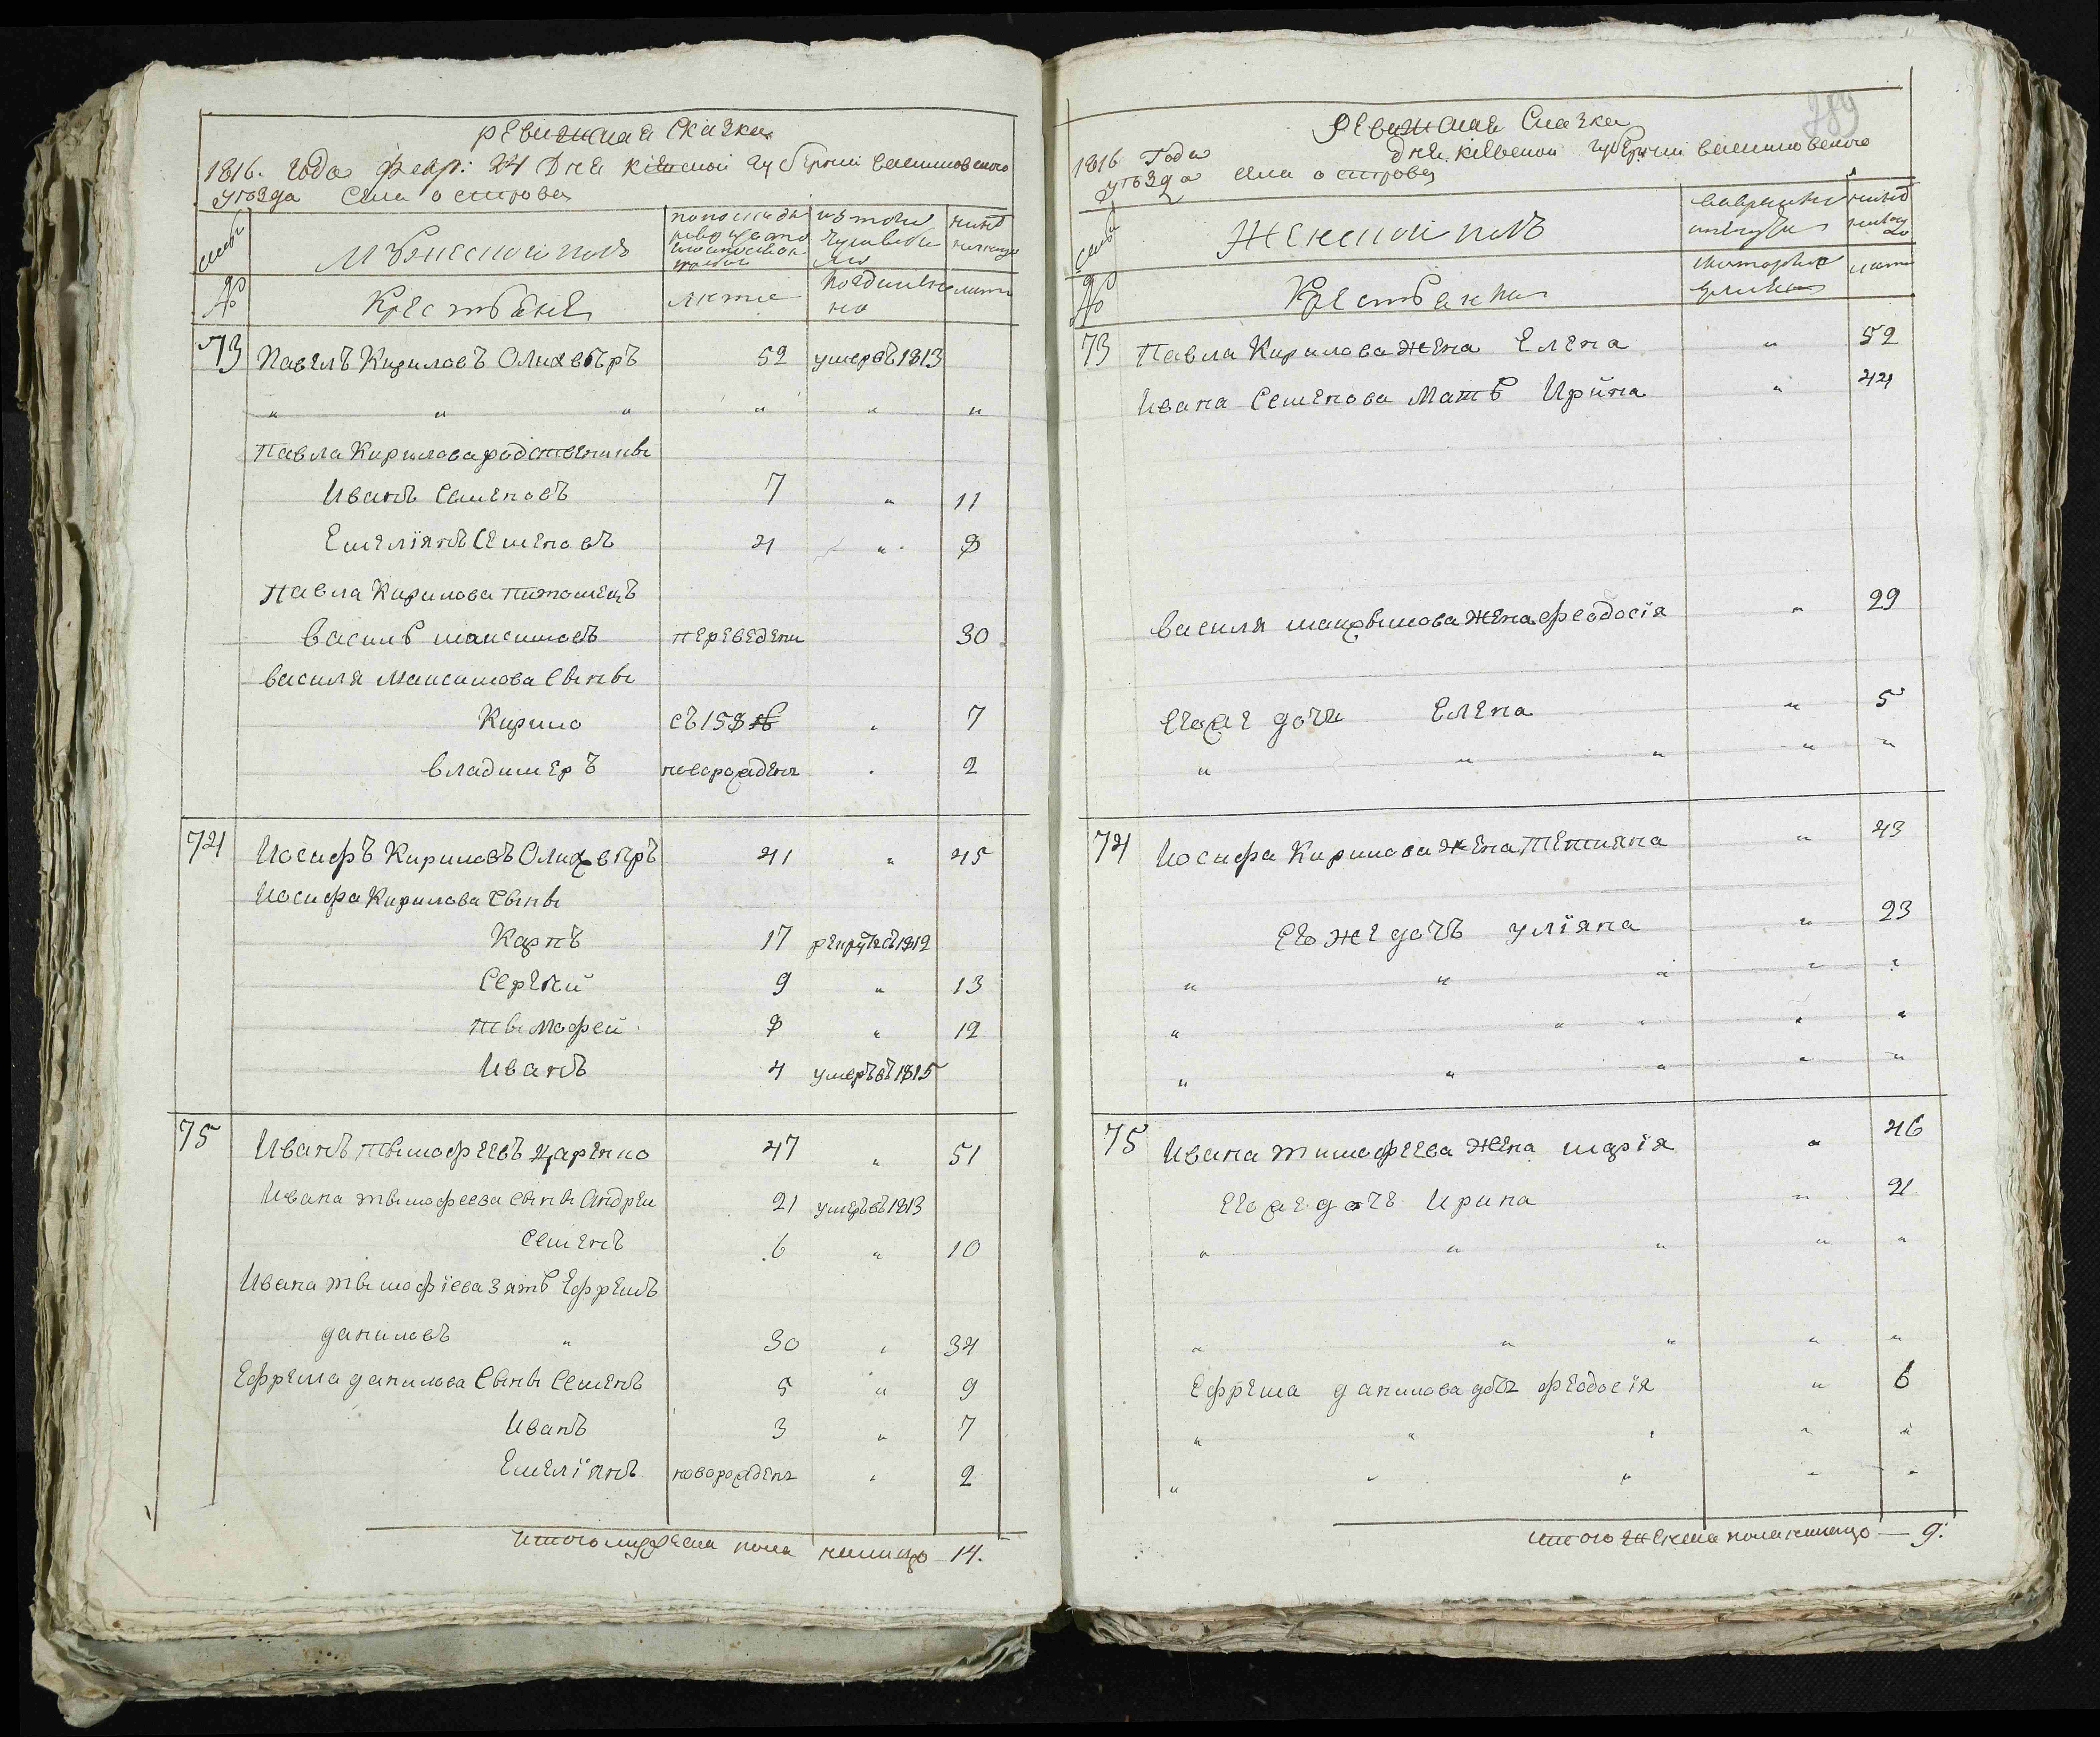 Ревижская Сказка
1816. года февр: 24 Дня Кіевской губернiи васильковского
уѣзда Села островa
семьи Мужеской полъ по последней ревизiи состояло из того числа выбыло ныне на лицо
№ Крестьяне лѣта когда имянно лѣта
73 Павелъ Кириловъ Олихвѣръ 52 умеръ въ 1813
" " " " " "
Павла Кирилова родственники
Иванъ Семеновъ 7 " 11
Емелiянъ Семеновъ 4 " 8
Павла Кирилова питомецъ
Василь Максимовъ переведенъ 30
Василя Максимова Сыны
Кирило съ 158 № " 7
Владимеръ новорожденъ " 2
74 Иосифъ Кириловъ Олихвѣръ 41 " 45
Иосифа Кирилова Сыны
Карпъ 17 рекрутъ въ 1812
Сергѣй 9 " 13
Тымофей 8 " 12
Иванъ 4 умеръ въ 1815
75 Иванъ Тымофеевъ Царенко 47 " 51
Ивана Тымофеева Сыны Андрей 21 умеръ въ 1813
Семенъ 6 " 10
Ивана Тымофiева Зять Ефремъ
Даниловъ " 30 " 34
Ефрема Данилова Сыны Семенъ 5 " 9
Иванъ 3 " 7
Емелiянъ новорожденъ " 2
Итого мужеска пола налицо — 14.
289
Ревижская Сказка
1816 Года Дня Кiевской губернiи васильковского
уѣзда Села островa
семьи Женской полъ во временной отлучке ныне на лицо
№ Крестьянки лѣта
73 Павла Кирилова жена Елена " 52
Ивана Семенова Мать Ирина " 44
Василя Макъсымова жена Феодосiя " 29
Его же дочь Елена " 5
" " " " "
74 Иосифа Кирилова жена Тетияна " 43
Его же дочъ Улiяна " 23
" " " " "
" " " " "
" " " " "
75 Ивана Тимофеева жена Марiя " 46
Его же дочъ Ирина " 21
" " " " "
" " " " "
Ефрема Данилова дочь Феодосiя " 6
" " " " "
" " " " "
Итого Женска пола налицо — 9.